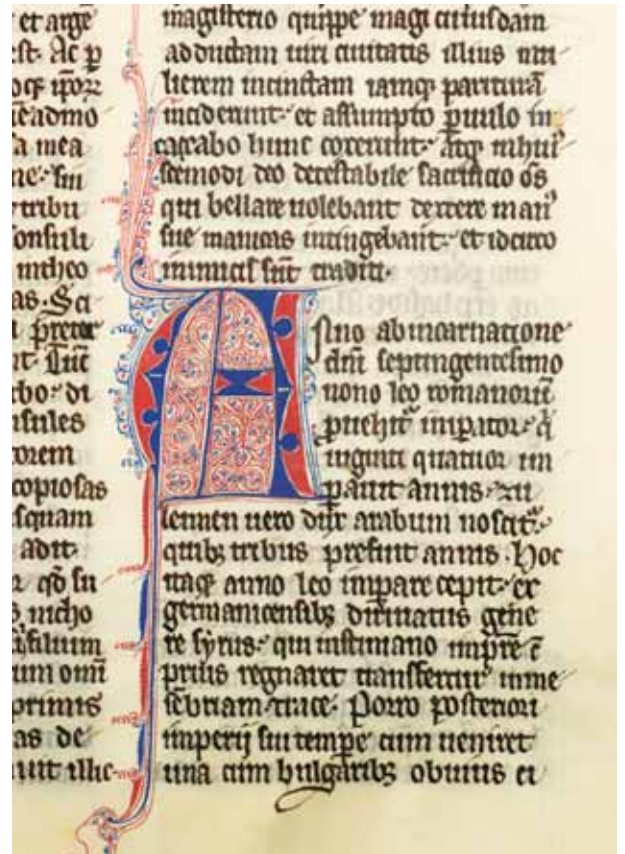 et arge
st. Ac p
ocꝫ ip̄oꝝ
ie admo
a mea
ne. sui
tribu
onsuli
incho
as. Sci
pretor
nt. Tūc
cho. di
nsules
torem
copiosas
squam
adit.
qd̄ su
s incho
filium
um omī
primis
as de
nuit illic
magisterio quippe magi cuiusdam
adductam uiri ciuitatis illius mu
lierem incinctam iamqꝫ pariturā
inciderunt. et assumpto p̄uulo in
cacabo hunc coxerunt. atqꝫ in hui᷒
scemodi deo detestabile sacrificio oēs
qui bellare uolebant dextere man᷒
sue manicas intingebant. et idcirco
inimicis sūt traditi.
Anno ab incarnatione
dn̄i septingentesimo
nono leo romanorū
p̄uehit᷑ imp̄ator. q̄
uiginti quatuor im
p̄auit annis. zu
leimen uero dux arabum noscit᷑.
quibꝫ tribus prefuit annis. Hoc
itaqꝫ anno leo imp̄are cepit. ex
germanicensibꝫ diriuatus gene
re syrus. qui iustiniano imp̄re ē
prius regnaret transfertur in me
sēbriam trace. Porro posteriori
imperij sui temp̄e cum ueniret
una cum bulgaribꝫ obuius ei